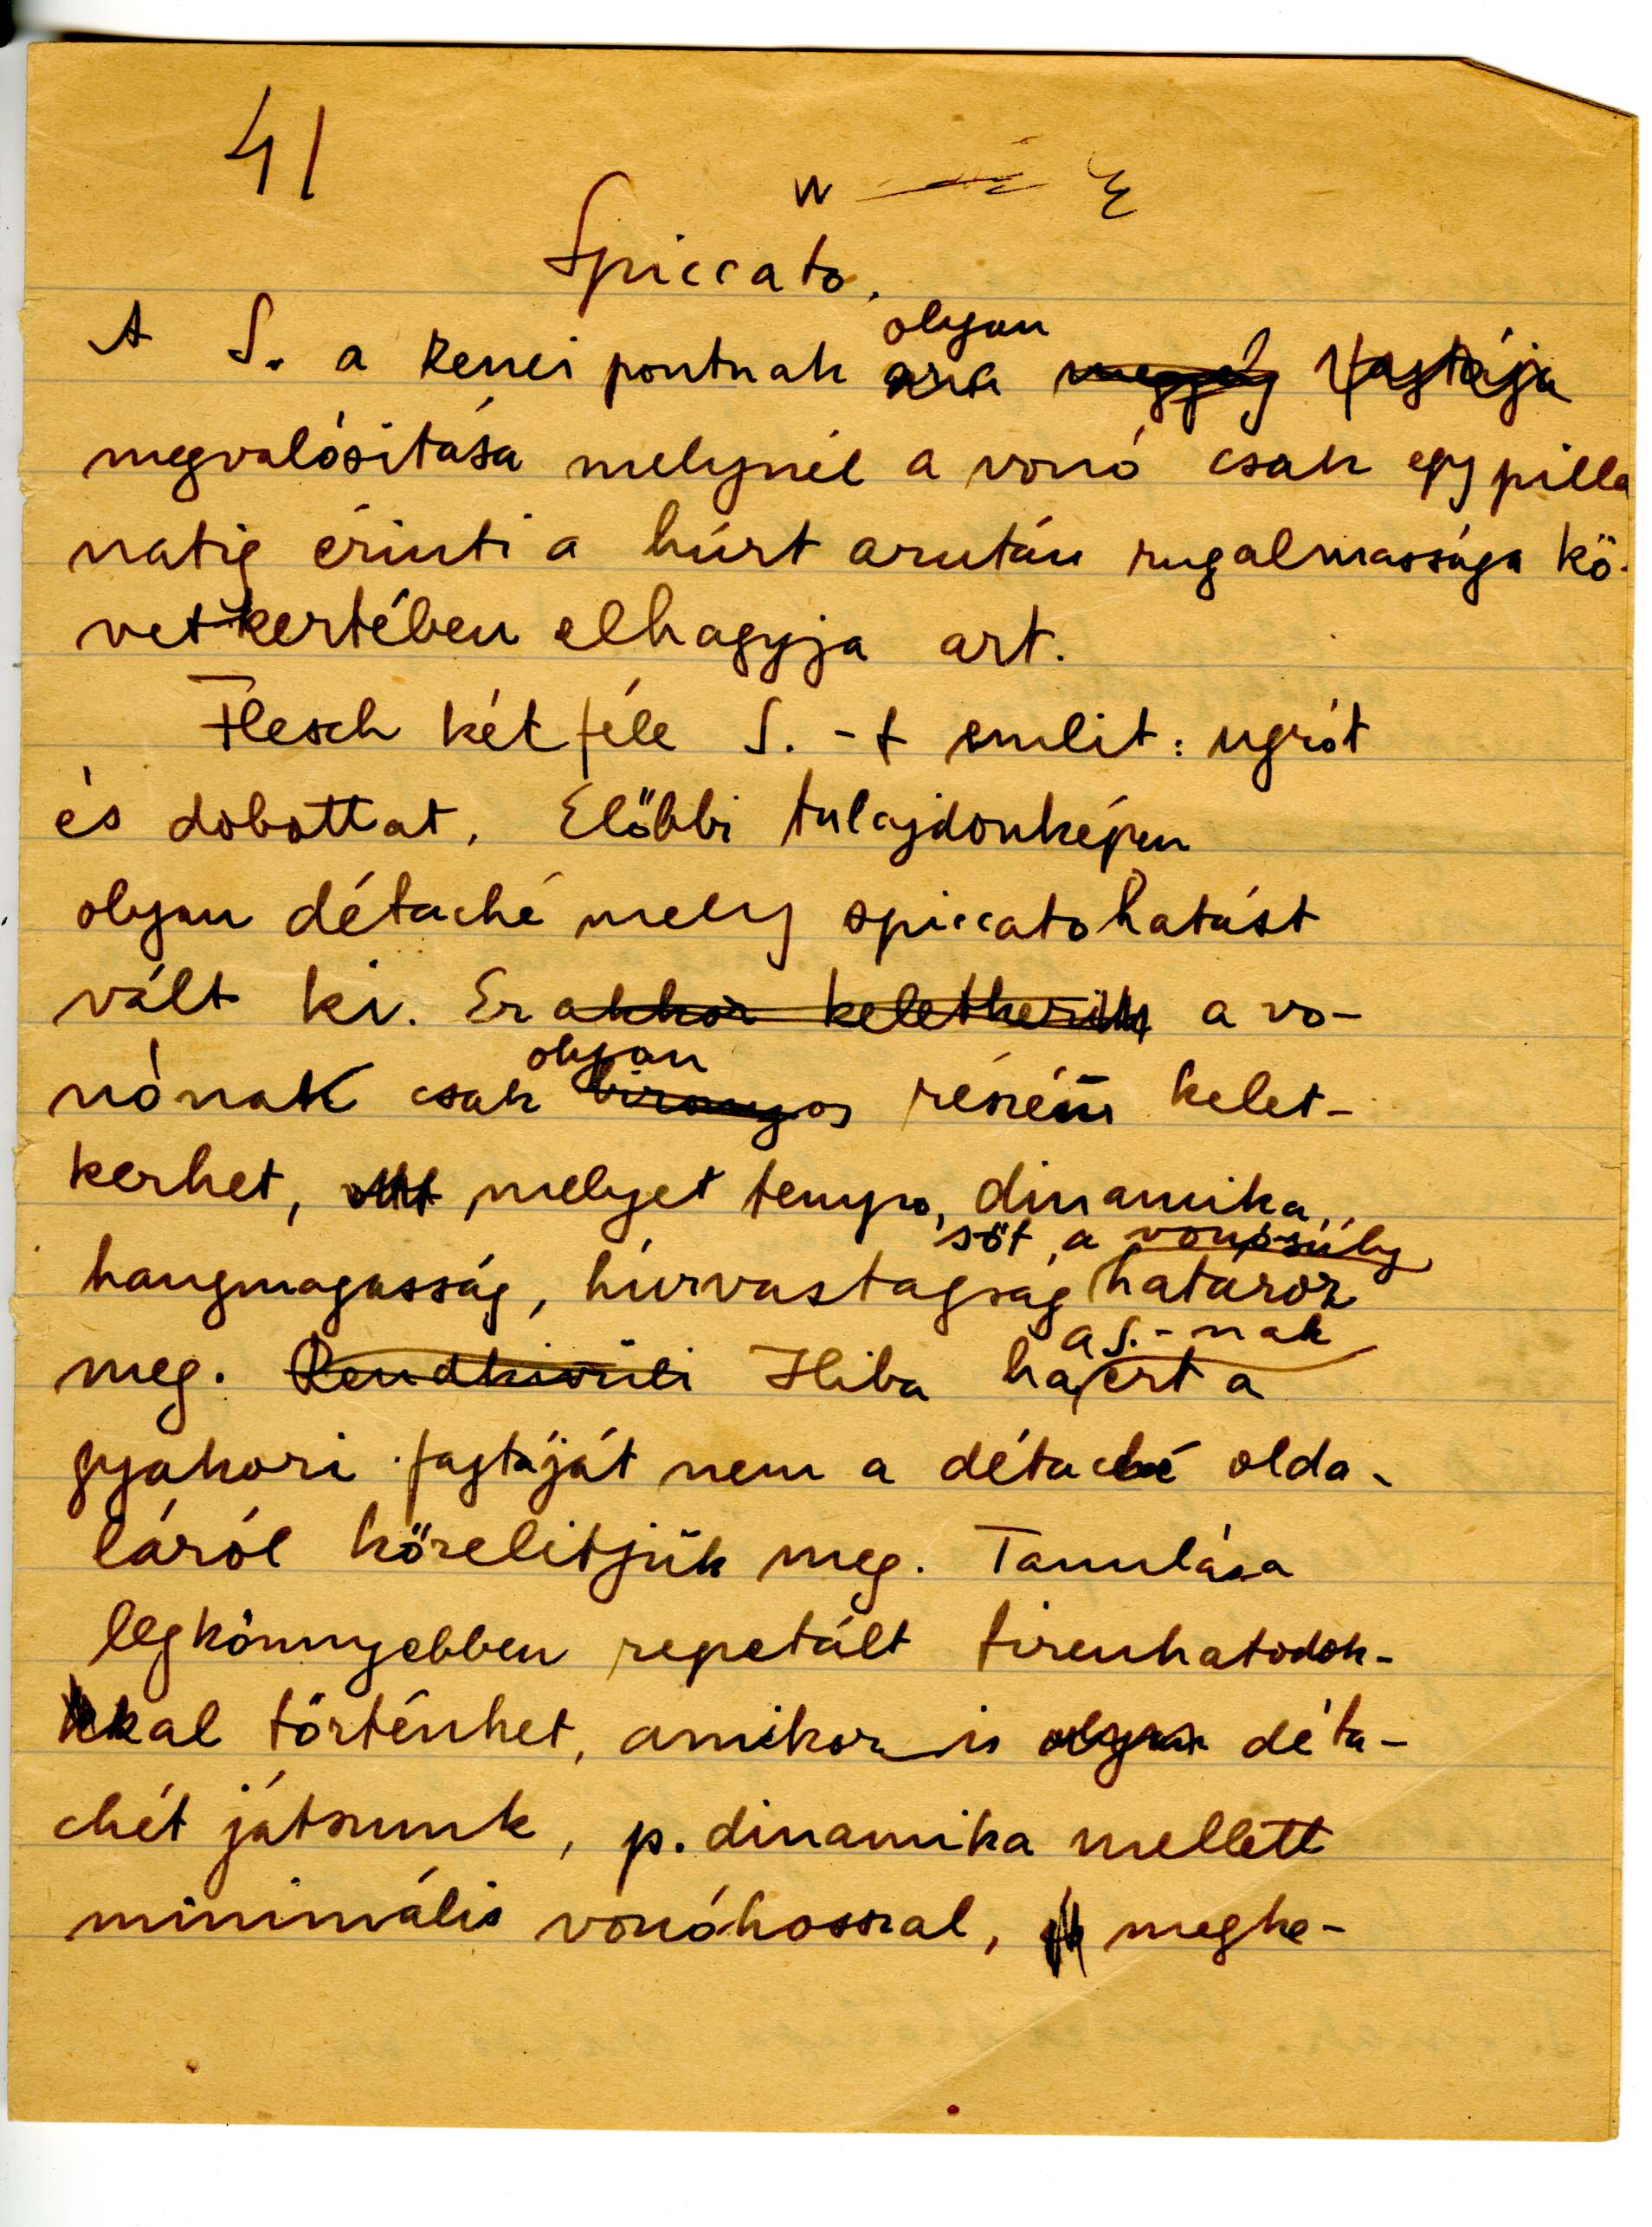 41
Spiccato.
olyan
A S. a zenei pontnak aza fajtája
megvalósitása melynél a vonó csak egy pilla
natig érinti a húrt azután rugalmassága kö-
vetkeztében elhagyja azt.
Flesch kétféle S. -t emlit: ugrót
és dobottat. Előbbi tulajdonképen
olyan détaché mely spiccatohatást
vált ki. Ez akkor keletkezik a vo-
olyan
nónak csak bizonyos részén kelet-
kezhet, melyet tempo, dinamika,
sőt a vonósúly
hangmagasság, húrvastagság határoz
a S.-nak
meg. Rendkivüli Hiba ha ezt a
gyakori fajtáját nem a détaché olda-
láról közelitjük meg. Tanulása
legkönnyebben repetált tizenhatodok-
kal történhet, amikor is olyan déta-
chét játszunk, p. dinamika mellett
minimális vonóhosszal, meghe-